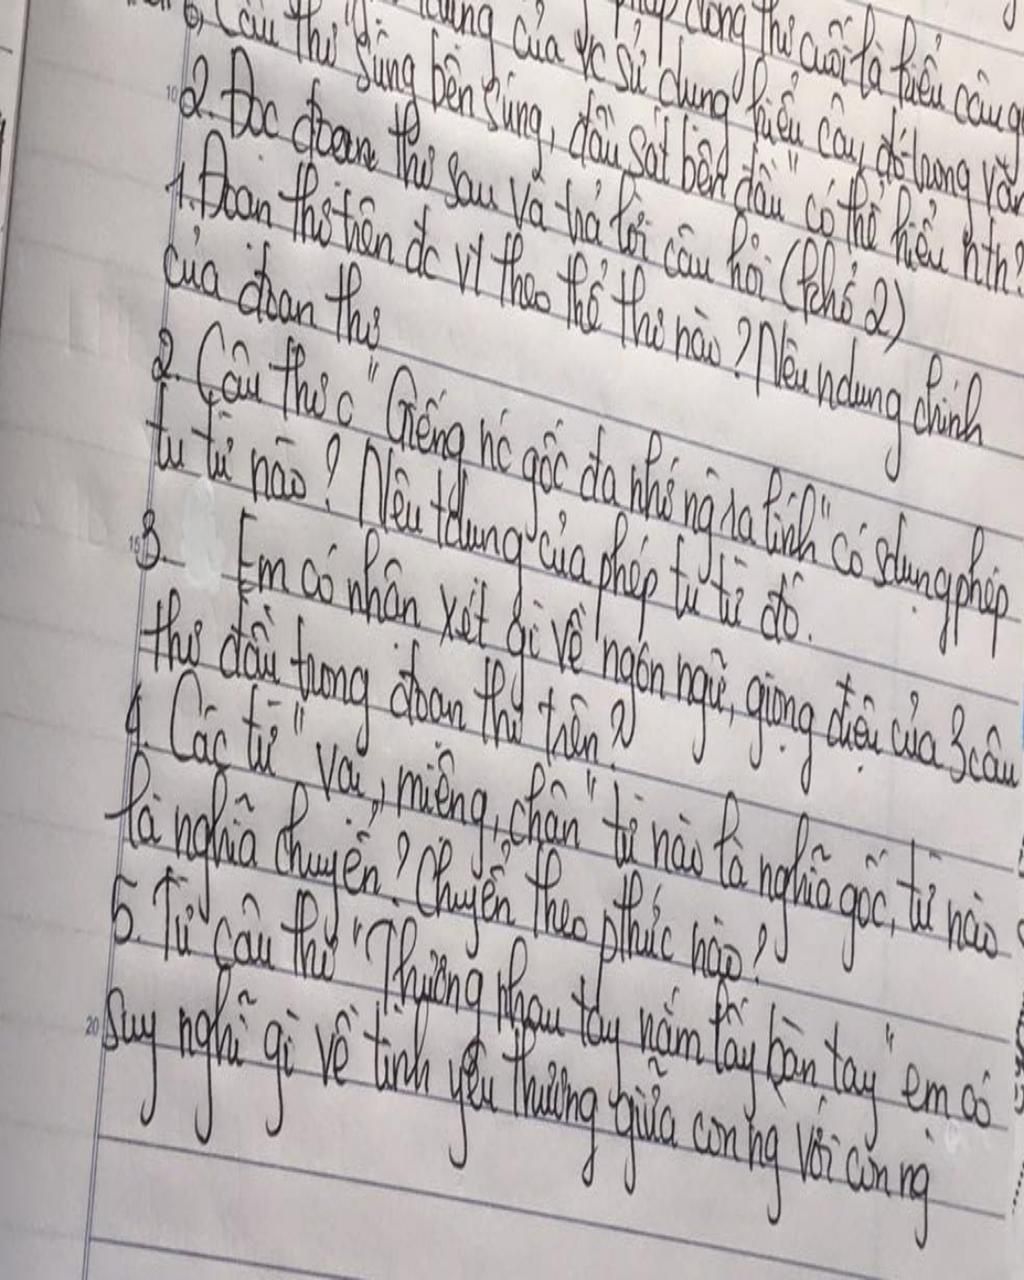 dụng của vc sử dụng kiểu câu đó trong văn
6, Câu thơ "Súng bên súng, đầu sát bên đầu" có thể hiểu nth?
2. Đọc đoạn thơ sau và trả lời câu hỏi (khổ 2)
1. Đoạn thơ trên đc vt theo thể thơ nào? Nêu ndung chính
của đoạn thơ
2. Câu thơ c "Giếng nc gốc đa nhớ ng ra lính" có sdụng phép
tu từ nào? Nêu tdung của phép tu từ đó.
3. Em có nhận xét gì về ngôn ngữ, giọng điệu của 3 câu
thơ đầu trong đoạn thơ trên?
4. Các từ "vai, miệng, chân" từ nào là nghĩa gốc, từ nào
là nghĩa chuyển? Chuyển theo pthức nào?
5. Từ câu thơ "Thương nhau tay nắm lấy bàn tay" em có
suy nghĩ gì về tình yêu thương giữa con ng với con ng